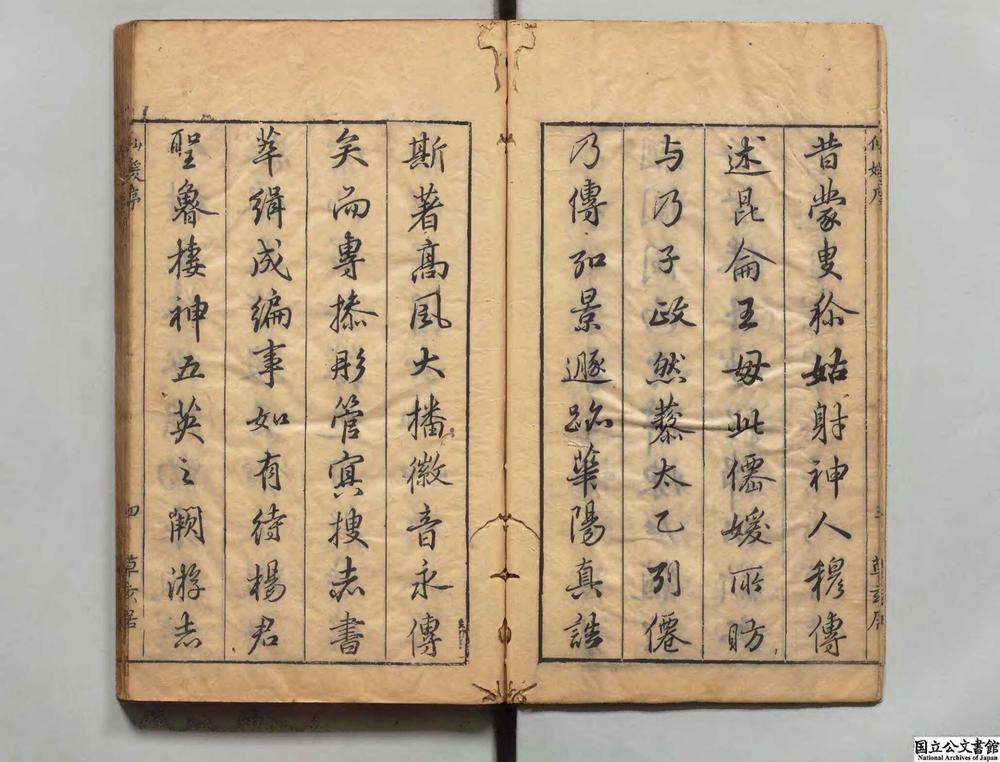 昔蒙叟称姑射神人穆傳
述昆侖王母此僊媛所昉
与乃子政然藜太乙列僊
乃傳弘景遯跡華陽真誥
斯著高風大播徽音永傳
矣而專搽彤管冥搜志書
萃緝成編事如有待楊君
聖魯棲神五英之闕游志
三
四
草玄居
国立公文書館
National Archives of Japan